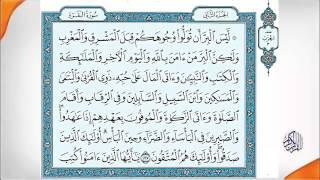 الجزء الثاني
سورة البقرة
۞ لَّيْسَ ٱلْبِرَّ أَن تُوَلُّوا۟ وُجُوهَكُمْ قِبَلَ ٱلْمَشْرِقِ وَٱلْمَغْرِبِ
وَلَٰكِنَّ ٱلْبِرَّ مَنْ ءَامَنَ بِٱللَّهِ وَٱلْيَوْمِ ٱلْءَاخِرِ وَٱلْمَلَٰٓئِكَةِ
وَٱلْكِتَٰبِ وَٱلنَّبِيِّۦنَ وَءَاتَى ٱلْمَالَ عَلَىٰ حُبِّهِۦ ذَوِى ٱلْقُرْبَىٰ وَٱلْيَتَٰمَىٰ
وَٱلْمَسَٰكِينَ وَٱبْنَ ٱلسَّبِيلِ وَٱلسَّآئِلِينَ وَفِى ٱلرِّقَابِ وَأَقَامَ
ٱلصَّلَوٰةَ وَءَاتَى ٱلزَّكَوٰةَ وَٱلْمُوفُونَ بِعَهْدِهِمْ إِذَا عَٰهَدُوا۟
وَٱلصَّٰبِرِينَ فِى ٱلْبَأْسَآءِ وَٱلضَّرَّآءِ وَحِينَ ٱلْبَأْسِ أُو۟لَٰٓئِكَ ٱلَّذِينَ
صَدَقُوا۟ وَأُو۟لَٰٓئِكَ هُمُ ٱلْمُتَّقُونَ ١٧٧ يَٰٓأَيُّهَا ٱلَّذِينَ ءَامَنُوا۟ كُتِبَ